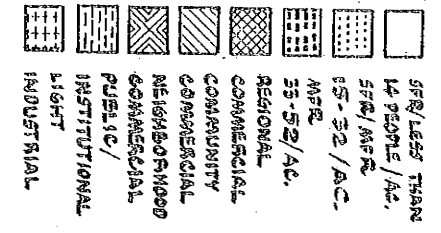 SFR/LESS THAN
14 PEOPLE/AC.
SFR/MFR
15-32/AC.
MFR
33-52/AC.
REGIONAL
COMMERCIAL
COMMUNITY
COMMERCIAL
NEIGHBORHOOD
COMMERCIAL
PUBLIC/
INSTITUTIONAL
LIGHT
INDUSTRIAL